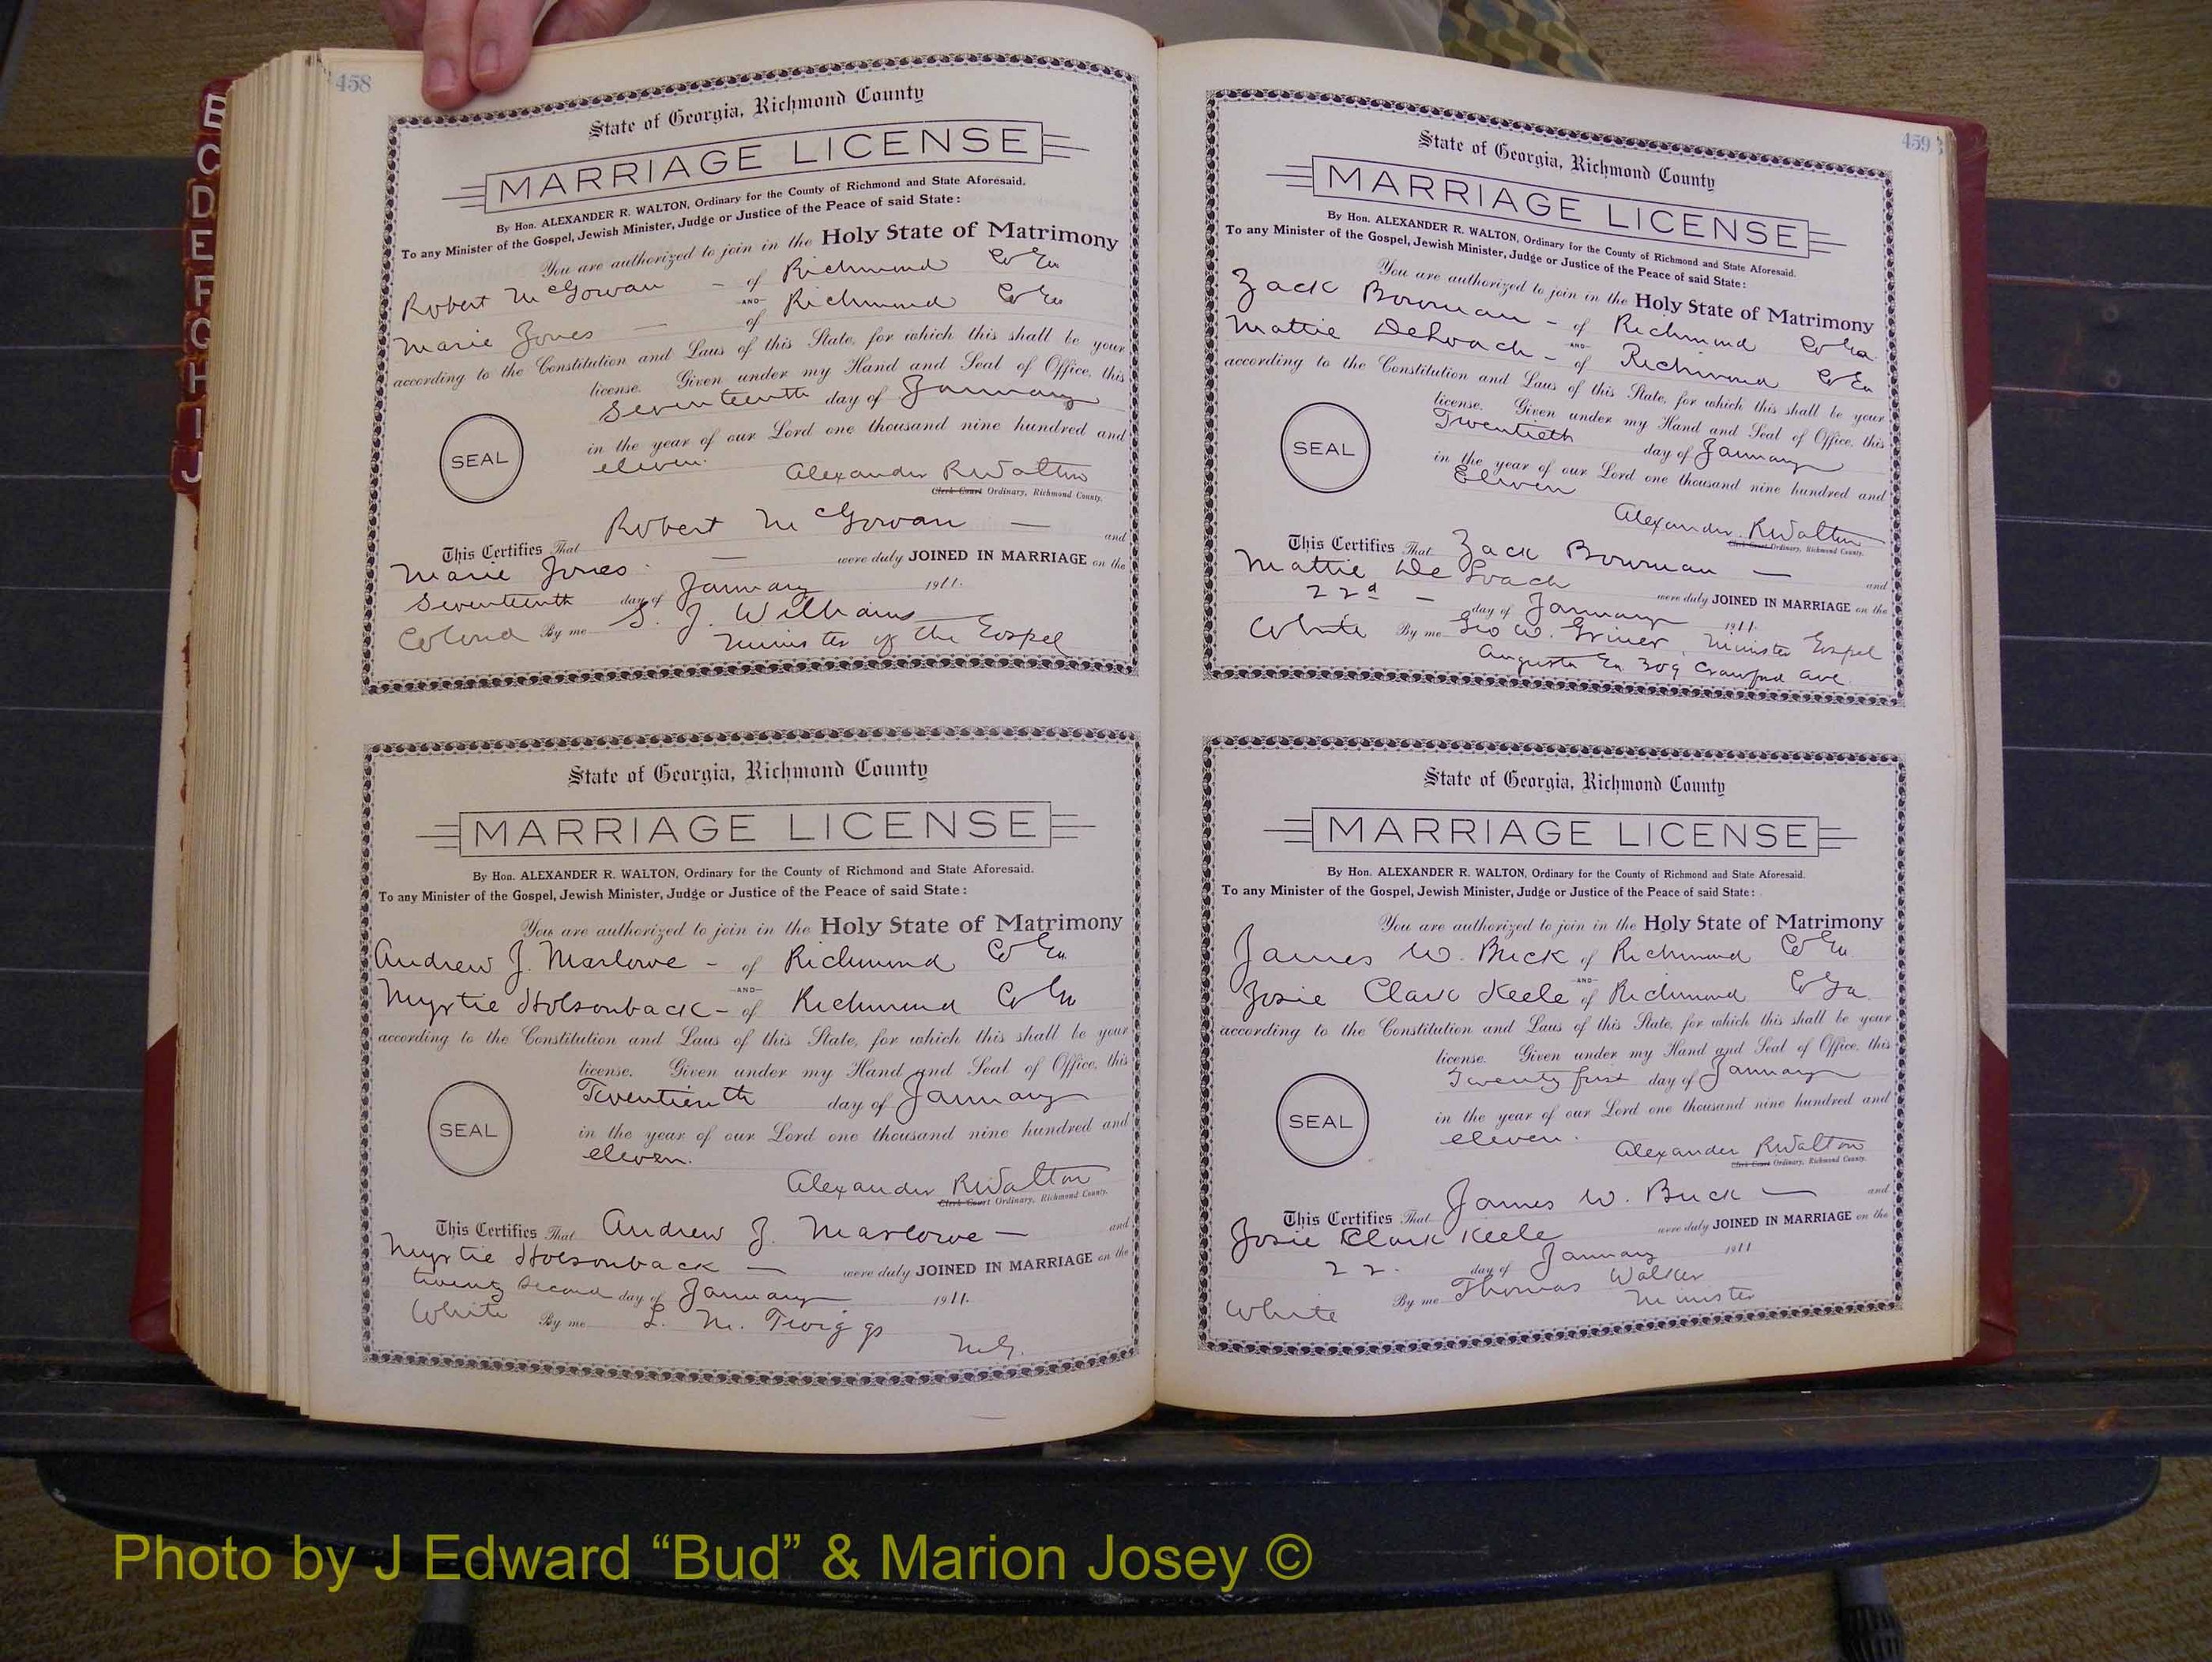 B
C
D
E
F
G
H
I
J
458
State of Georgia, Richmond County
MARRIAGE LICENSE
By Hon. ALEXANDER R. WALTON, Ordinary for the County of Richmond and State Aforesaid.
To any Minister of the Gospel, Jewish Minister, Judge or Justice of the Peace of said State:
You are authorized to join in the Holy State of Matrimony
Robert McGowan - of Richmond Co Ga
AND
Marie Jones — of Richmond Co Ga
according to the Constitution and Laws of this State, for which this shall be your
license. Given under my Hand and Seal of Office, this
Seventeenth day of January
in the year of our Lord one thousand nine hundred and
eleven.
SEAL
Alexander R Walton
Clerk Court Ordinary, Richmond County.
This Certifies That Robert McGowan — and
Marie Jones — were duly JOINED IN MARRIAGE on the
Seventeenth day of January 1911.
Colored By me S. J. Williams
Minister of the Gospel
State of Georgia, Richmond County
MARRIAGE LICENSE
By Hon. ALEXANDER R. WALTON, Ordinary for the County of Richmond and State Aforesaid.
To any Minister of the Gospel, Jewish Minister, Judge or Justice of the Peace of said State:
You are authorized to join in the Holy State of Matrimony
Andrew J. Marlowe - of Richmond Co Ga
AND
Myrtie Holsonback - of Richmond Co Ga
according to the Constitution and Laws of this State, for which this shall be your
license. Given under my Hand and Seal of Office, this
Twentienth day of January
in the year of our Lord one thousand nine hundred and
eleven.
SEAL
Alexander R Walton
Clerk Court Ordinary, Richmond County.
This Certifies That Andrew J. Marlowe — and
Myrtie Holsonback — were duly JOINED IN MARRIAGE on the
twenty second day of January 1911.
White By me L. M. Twiggs
M.G.
459
State of Georgia, Richmond County
MARRIAGE LICENSE
By Hon. ALEXANDER R. WALTON, Ordinary for the County of Richmond and State Aforesaid.
To any Minister of the Gospel, Jewish Minister, Judge or Justice of the Peace of said State:
You are authorized to join in the Holy State of Matrimony
Zack Bowman - of Richmond Co Ga.
AND
Mattie DeLoach - of Richmond Co Ga
according to the Constitution and Laws of this State, for which this shall be your
license. Given under my Hand and Seal of Office, this
Twentieth day of January
in the year of our Lord one thousand nine hundred and
Eleven
SEAL
Alexander R Walton
Clerk Court Ordinary, Richmond County.
This Certifies That Zack Bowman — and
Mattie De Loach were duly JOINED IN MARRIAGE on the
22d - day of January 1911.
White By me Geo W. Griner, Minister Gospel
Augusta Ga 309 Crawford Ave.
State of Georgia, Richmond County
MARRIAGE LICENSE
By Hon. ALEXANDER R. WALTON, Ordinary for the County of Richmond and State Aforesaid.
To any Minister of the Gospel, Jewish Minister, Judge or Justice of the Peace of said State:
You are authorized to join in the Holy State of Matrimony
James W. Buck of Richmond Co Ga
AND
Josie Clark Keele of Richmond Co Ga.
according to the Constitution and Laws of this State, for which this shall be your
license. Given under my Hand and Seal of Office, this
Twenty first day of January
in the year of our Lord one thousand nine hundred and
eleven.
SEAL
Alexander R Walton
Clerk Court Ordinary, Richmond County.
This Certifies That James W. Buck — and
Josie Clark Keele were duly JOINED IN MARRIAGE on the
22. day of January 1911
White By me Thomas Walker
Minister
Photo by J Edward “Bud” & Marion Josey ©